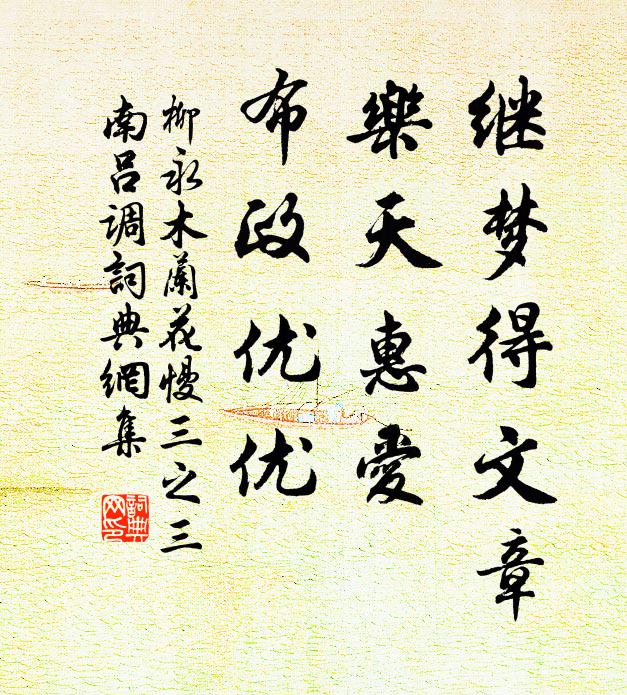 继梦得文章
樂天惠愛
布政优优
柳永木蘭花慢三之三
南吕调詞典網集
詞典
网印